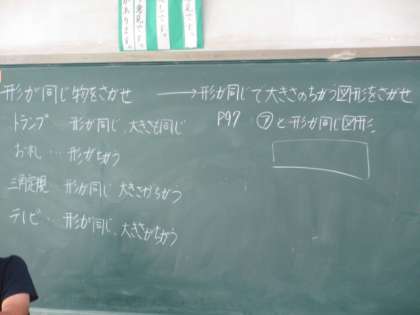 形が同じ物をさがせ → 形が同じで大きさのちがう図形をさがせ
トランプ 形が同じ、大きさも同じ
P97 ㋐と形が同じ図形
お札… 形がちがう
三角定規 形が同じ 大きさがちがう
テレビ… 形が同じ、大きさがちがう